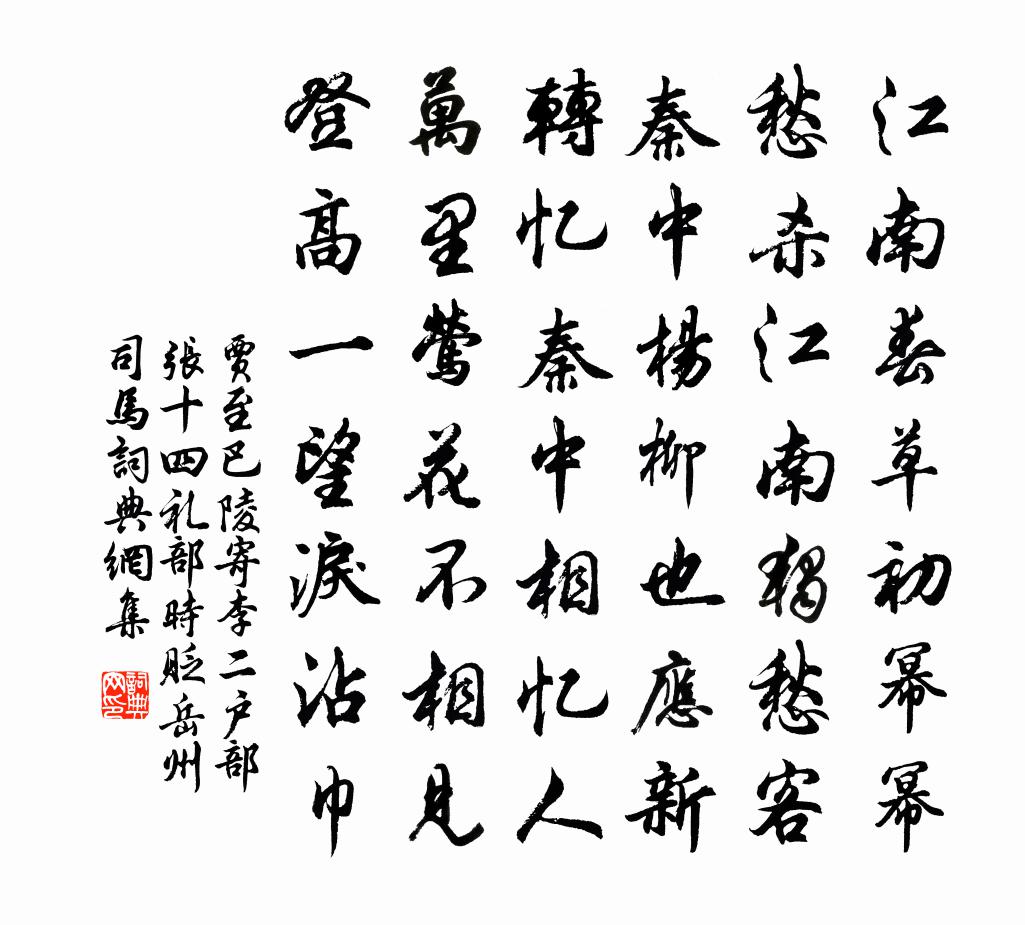 江南春草初幂幂
愁杀江南独愁客
秦中楊柳也應新
轉忆秦中相忆人
萬里鶯花不相見
登高一望淚沾巾
賈至巴陵寄李二户部
張十四礼部時貶岳州
司馬詞典網集
詞典网印